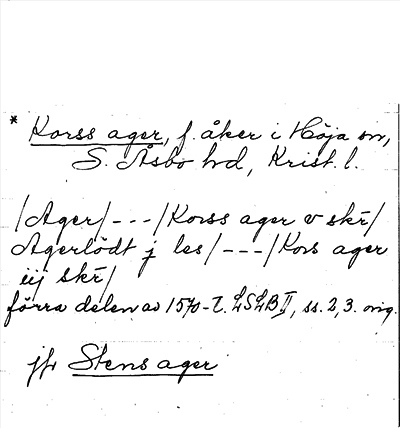 * Korss ager, f. åker i Höja sn,
S. Åsbo hd, Krist. l.
/Ager/---/Korss ager v skr̄/
Agerlödt j les/---/Kors ager
iij skr̄/
förra delen av 1570-t. LSLB II, ss. 2, 3. orig.
jfr Stens ager